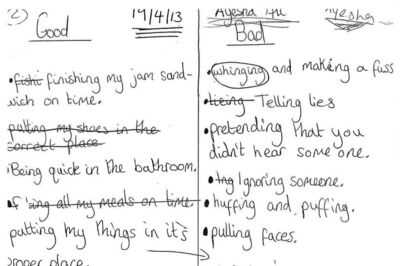 2)
Good
19/4/13
•fishi finishing my jam sand-
wich on time.
putting my shoes in the
correct place
•Being quick in the bathroom.
•f ing all my meals on time.
putting my things in it's
proper place.
Ayesha
Ayesha
Bad
•whinging and making a fuss
•lieing Telling lies
•pretending that you
didn't hear someone.
•Ing Ignoring someone.
•huffing and puffing.
•pulling faces.